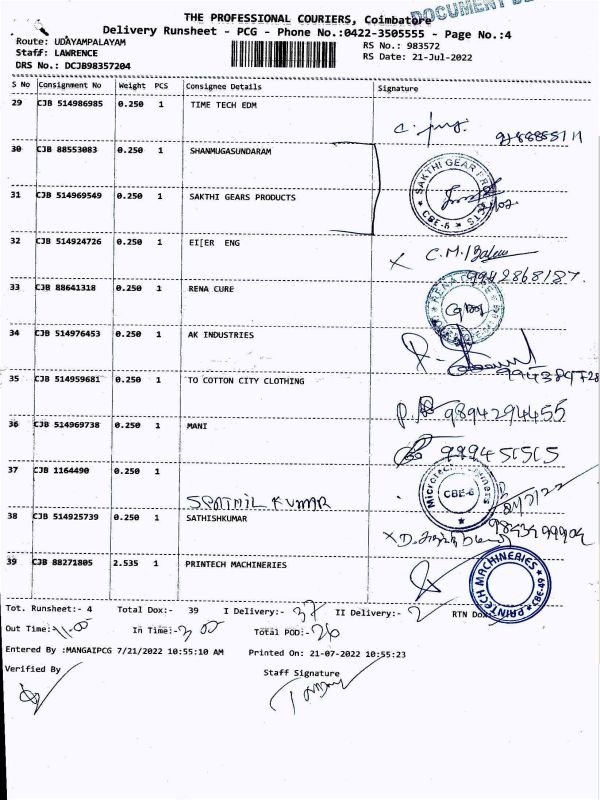 THE PROFESSIONAL COURIERS, Coimbatore
DOCUMENT
Delivery Runsheet - PCG - Phone No.:0422-3505555 - Page No.:4
Route: UDAYAMPALAYAM
RS No.: 983572
Staff: LAWRENCE
RS Date: 21-Jul-2022
DRS No.: DCJB98357204
S No Consignment No Weight PCS Consignee Details Signature
29 CJB 514986985 0.250 1 TIME TECH EDM
30 CJB 88553083 0.250 1 SHANMUGASUNDARAM
SAKTHI GEAR
CBE-6
31 CJB 514969549 0.250 1 SAKTHI GEARS PRODUCTS
32 CJB 514924726 0.250 1 EI[ER ENG
9942868187.
33 CJB 88641318 0.250 1 RENA CURE
34 CJB 514976453 0.250 1 AK INDUSTRIES
35 CJB 514959681 0.250 1 TO COTTON CITY CLOTHING
9894294455
36 CJB 514969738 0.250 1 MANI
37 CJB 1164490 0.250 1
CBE-6
KUMAR
38 CJB 514925739 0.250 1 SATHISHKUMAR
39 CJB 88271805 2.535 1 PRINTECH MACHINERIES
PRINTECH MACHINERIES
CBE-49
Tot. Runsheet:- 4 Total Dox:- 39 I Delivery:- 37 II Delivery:- 2 RTN Dox
Out Time:- 11.00 In Time:- 3 00 Total POD:- 26
Entered By :MANGAIPCG 7/21/2022 10:55:10 AM Printed On: 21-07-2022 10:55:23
Verified By
Staff Signature